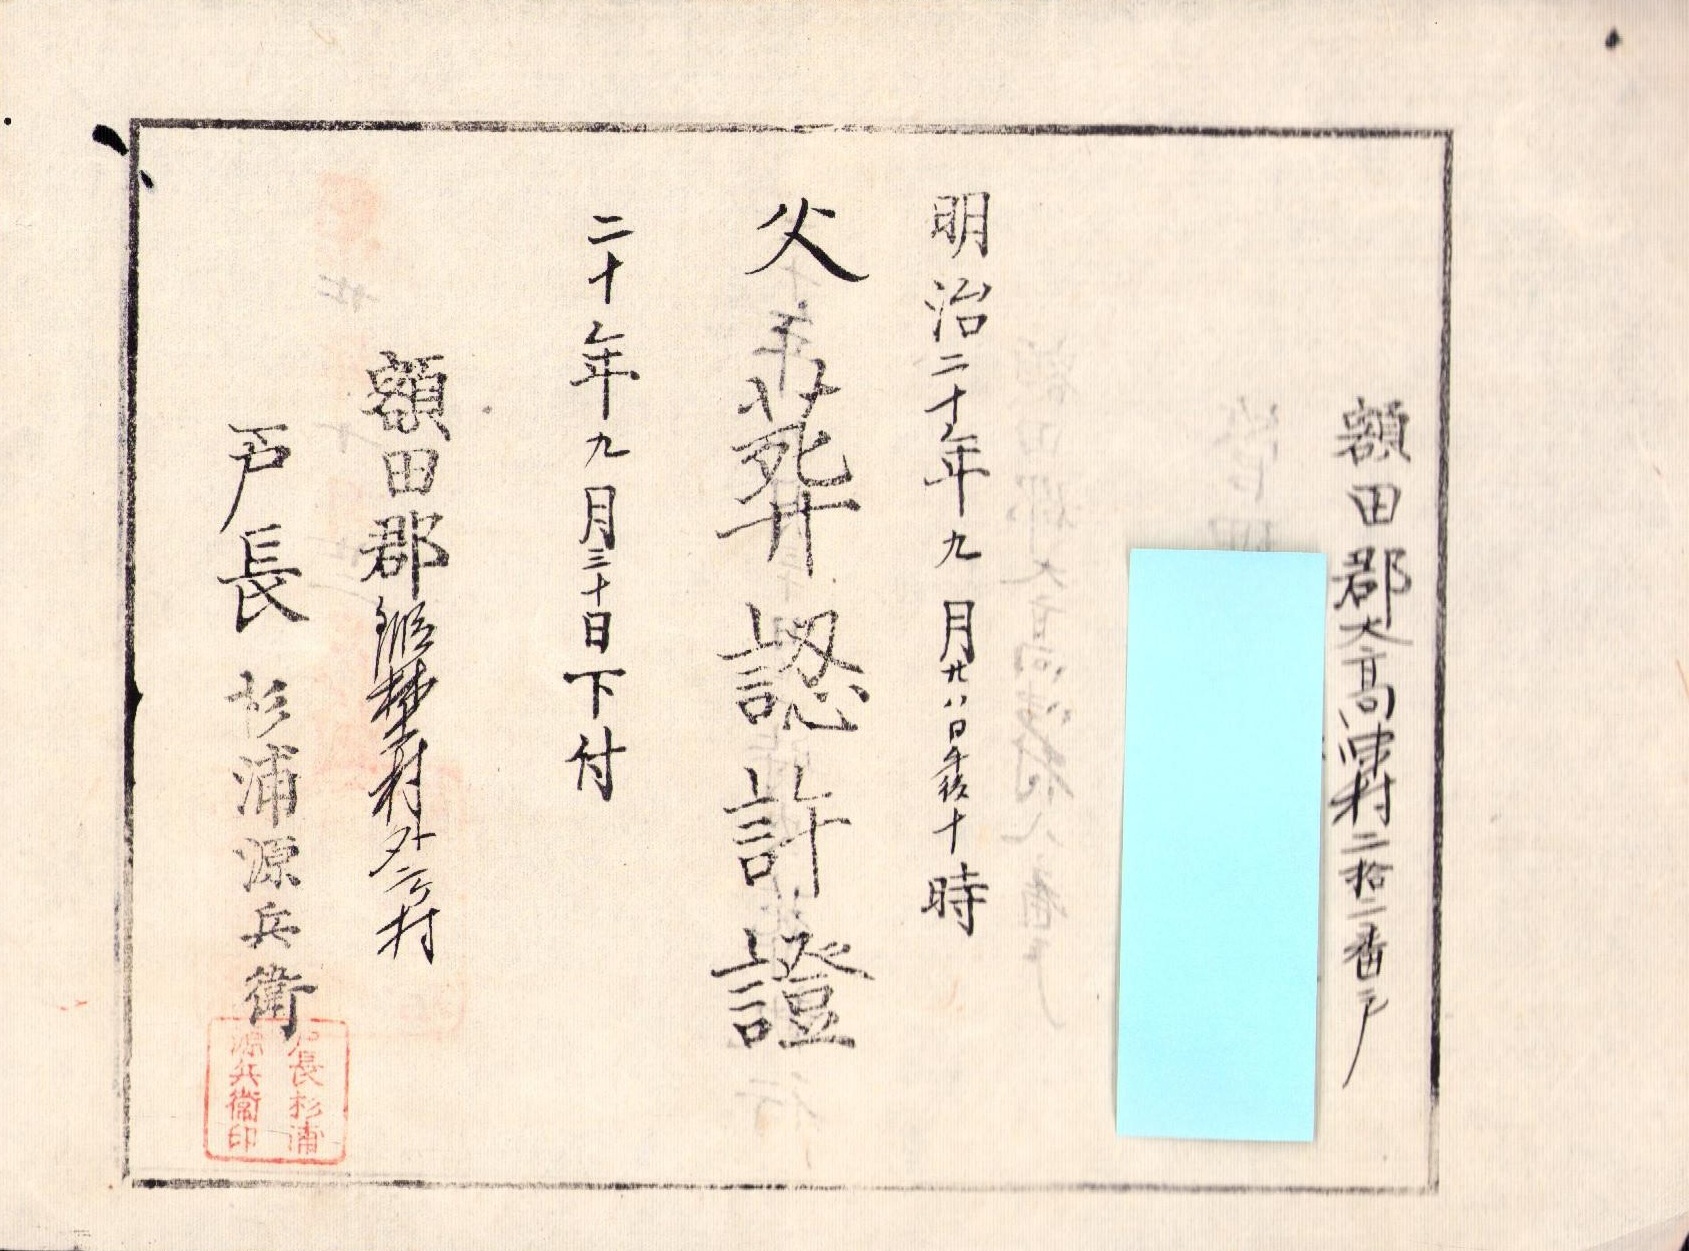 額田郡大高津村二拾二番戸
明治二十年九月廿八日午後十時
父葬認許證
二十年九月三十日下付
額田郡
村外
村
戸長 杉浦源兵衛
戸長杉浦
源兵衞印